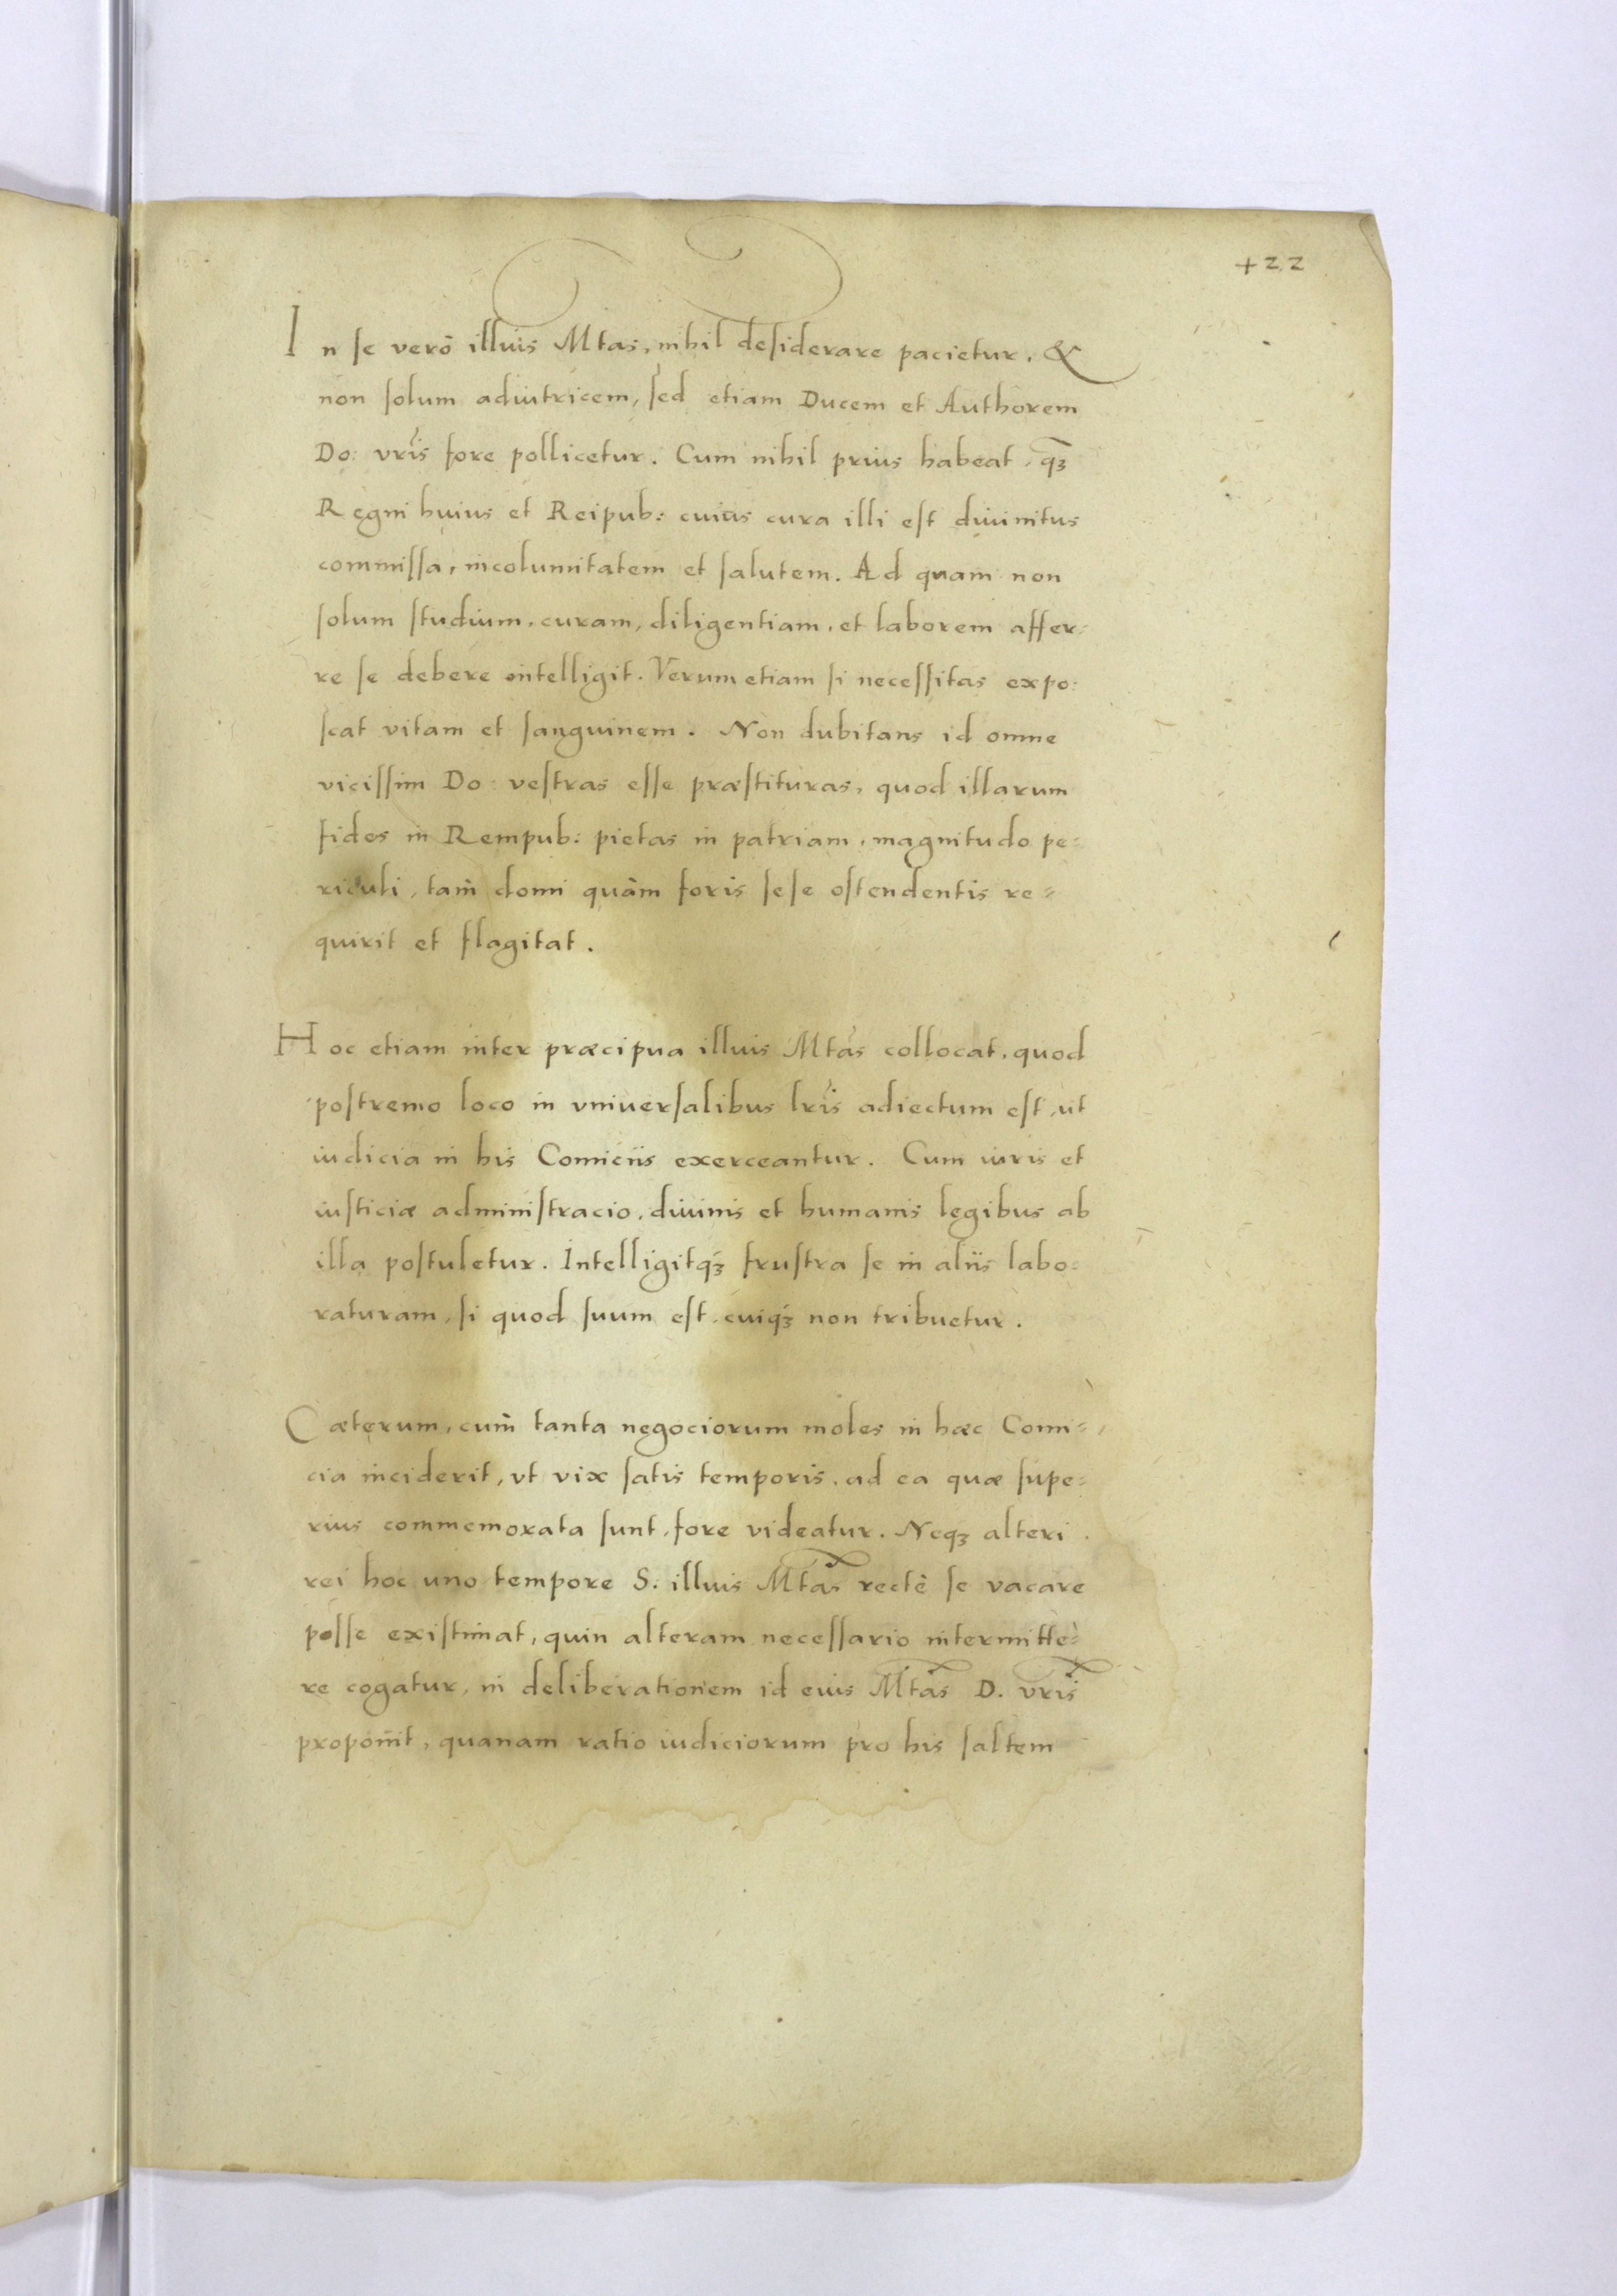 +22
In se verò illius Mtas, nihil desiderare pacietur, &
non solum adiutricem, sed etiam Ducem et Authorem
Do: vris fore pollicetur. Cum nihil prius habeat, qȝ
Regni huius et Reipub: cuius cura illi est divinitus
commissa, incolumitatem et salutem. Ad quam non
solum studium, curam, diligentiam, et laborem affer:
re se debere intelligit. Verum etiam si necessitas expo:
scat vitam et sanguinem. Non dubitans id omne
vicissim Do: vestras esse præstituras, quod illarum
fides in Rempub: pietas in patriam, magnitudo pe:
riculi, tam̀ domi quàm foris sese ostendentis re:
quirit et flagitat.
Hoc etiam inter præcipua illius Mtas collocat, quod
postremo loco in vniversalibus lris adiectum est, ut
iudicia in his Comiciis exerceantur. Cum iuris et
iusticiæ administracio, divinis et humanis legibus ab
illa postuletur. Intelligitqȝ frustra se in aliis labo:
raturam, si quod suum est, cuiqȝ non tribuetur.
Cæterum, cum̀ tanta negociorum moles in hæc Comi:
cia inciderit, vt vix satis temporis, ad ea quæ supe:
rius commemorata sunt, fore videatur. Neqȝ alteri
rei hoc uno tempore S. illius Mtas rectè se vacare
posse existimat, quin alteram necessario intermitte:
re cogatur, in deliberationem id eius Mtas D. vris
proponit, quanam ratio iudiciorum pro his saltem